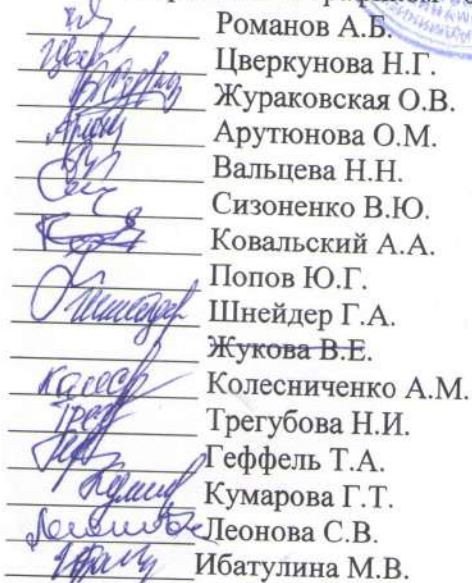 Романов А.Б.
Цверкунова Н.Г.
Жураковская О.В.
Арутюнова О.М.
Вальцева Н.Н.
Сизоненко В.Ю.
Ковальский А.А.
Попов Ю.Г.
Шнейдер Г.А.
Жукова В.Е.
Колесниченко А.М.
Трегубова Н.И.
Геффель Т.А.
Кумарова Г.Т.
Леонова С.В.
Ибатулина М.В.